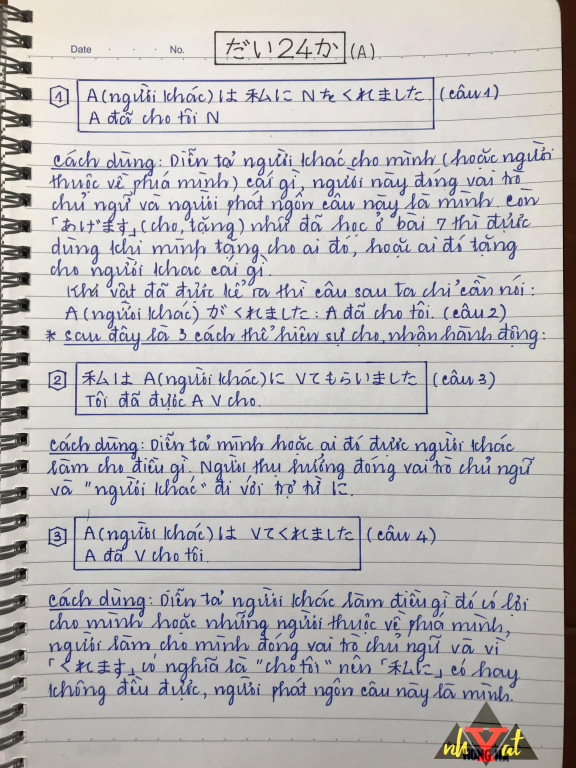 Date · · · No.
だい24か (A)
1 A (người khác) は 私に Nをくれました (câu 1)
A đã cho tôi N
Cách dùng: Diễn tả người khác cho mình (hoặc người
thuộc về phiá mình) cái gì, người này đóng vai trò
chủ ngữ và người phát ngôn câu này là mình. Còn
「あげます」(cho, tặng) như đã học ở bài 7 thì được
dùng khi mình tặng cho ai đó, hoặc ai đó tặng
cho người khác cái gì.
Khi vật đã được kể ra thì câu sau ta chỉ cần nói:
A (người khác) がくれました: A đã cho tôi. (câu 2)
* Sau đây là 3 cách thể hiện sự cho, nhận hành động:
2 私は A (người khác) に Vてもらいました (câu 3)
Tôi đã được A V cho.
Cách dùng: Diễn tả mình hoặc ai đó được người khác
làm cho điều gì. Người thụ hưởng đóng vai trò chủ ngữ
và "người khác" đi với trợ từ に.
3 A (người khác) は Vてくれました (câu 4)
A đã V cho tôi.
Cách dùng: Diễn tả người khác làm điều gì đó có lợi
cho mình hoặc những người thuộc về phiá mình,
người làm cho mình đóng vai trò chủ ngữ và vì
「くれます」có nghĩa là "cho tôi" nên 「私に」có hay
không đều được, người phát ngôn câu này là mình.